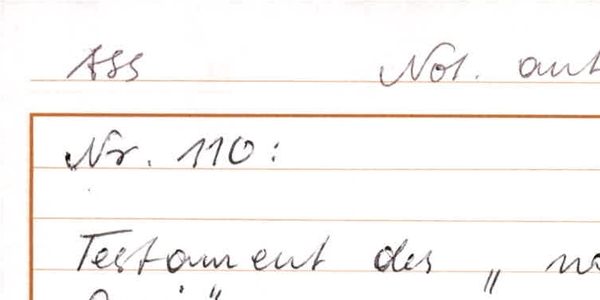 ASS Not. ant
Nr. 110:
Testament des "